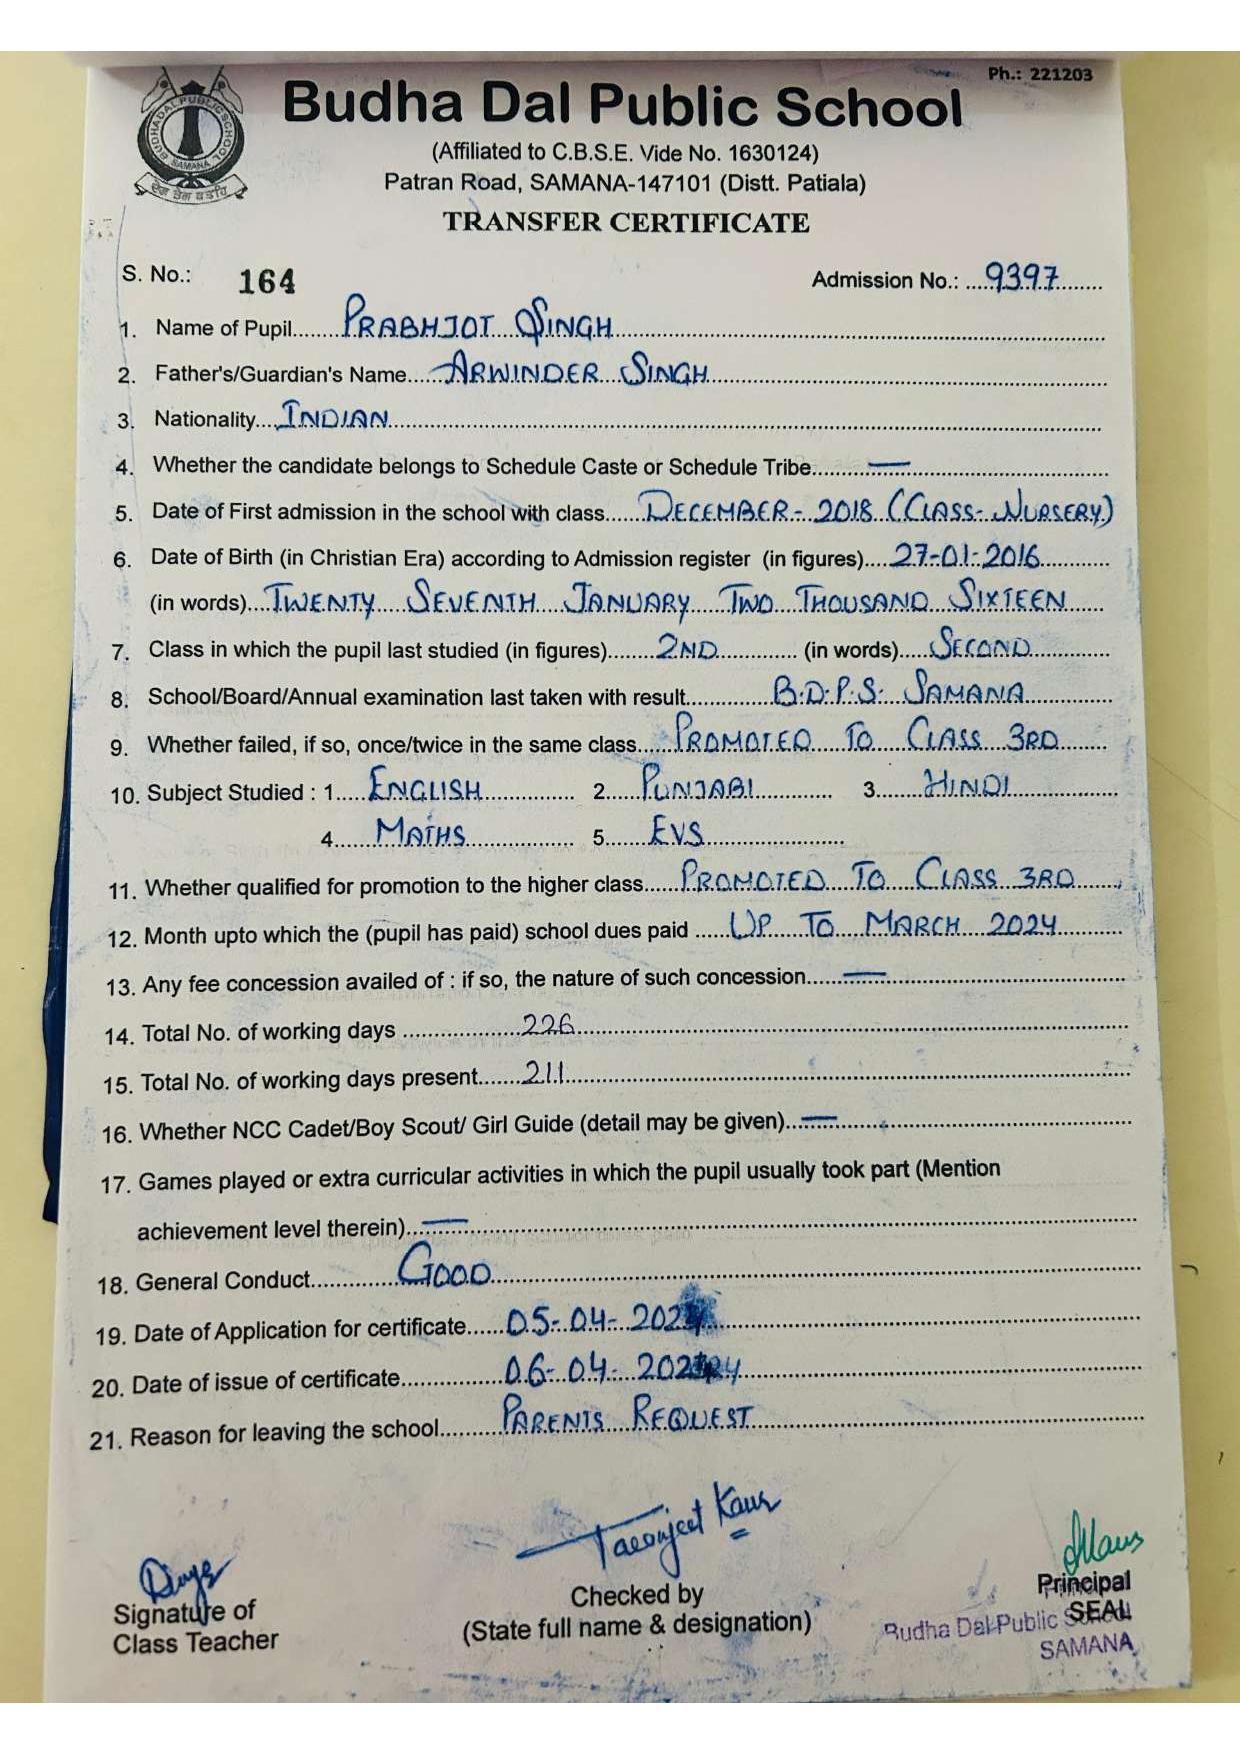 Ph.: 221203
BUDHA DAL PUBLIC SCHOOL
SAMANA
Budha Dal Public School
(Affiliated to C.B.S.E. Vide No. 1630124)
Patran Road, SAMANA-147101 (Distt. Patiala)
TRANSFER CERTIFICATE
S. No.: 164 Admission No.: 9397
1. Name of Pupil PRABHJOT SINGH
2. Father's/Guardian's Name ARWINDER SINGH
3. Nationality INDIAN
4. Whether the candidate belongs to Schedule Caste or Schedule Tribe —
5. Date of First admission in the school with class DECEMBER-2018 (CLASS-NURSERY)
6. Date of Birth (in Christian Era) according to Admission register (in figures) 27-01-2016
(in words) TWENTY SEVENTH JANUARY TWO THOUSAND SIXTEEN
7. Class in which the pupil last studied (in figures) 2ND (in words) SECOND
8. School/Board/Annual examination last taken with result B.D.P.S. SAMANA
9. Whether failed, if so, once/twice in the same class PROMOTED TO CLASS 3RD
10. Subject Studied : 1 ENGLISH 2 PUNJABI 3 HINDI
4 MATHS 5 EVS
11. Whether qualified for promotion to the higher class PROMOTED TO CLASS 3RD
12. Month upto which the (pupil has paid) school dues paid UP TO MARCH 2024
13. Any fee concession availed of : if so, the nature of such concession —
14. Total No. of working days 226
15. Total No. of working days present 211
16. Whether NCC Cadet/Boy Scout/ Girl Guide (detail may be given) —
17. Games played or extra curricular activities in which the pupil usually took part (Mention
achievement level therein) —
18. General Conduct GOOD
19. Date of Application for certificate 05-04-2024
20. Date of issue of certificate 06-04-2024
21. Reason for leaving the school PARENTS REQUEST
Signature of
Class Teacher
Kaur
Checked by
(State full name & designation)
Principal
SEAL
Principal
Budha Dal Public School
SAMANA